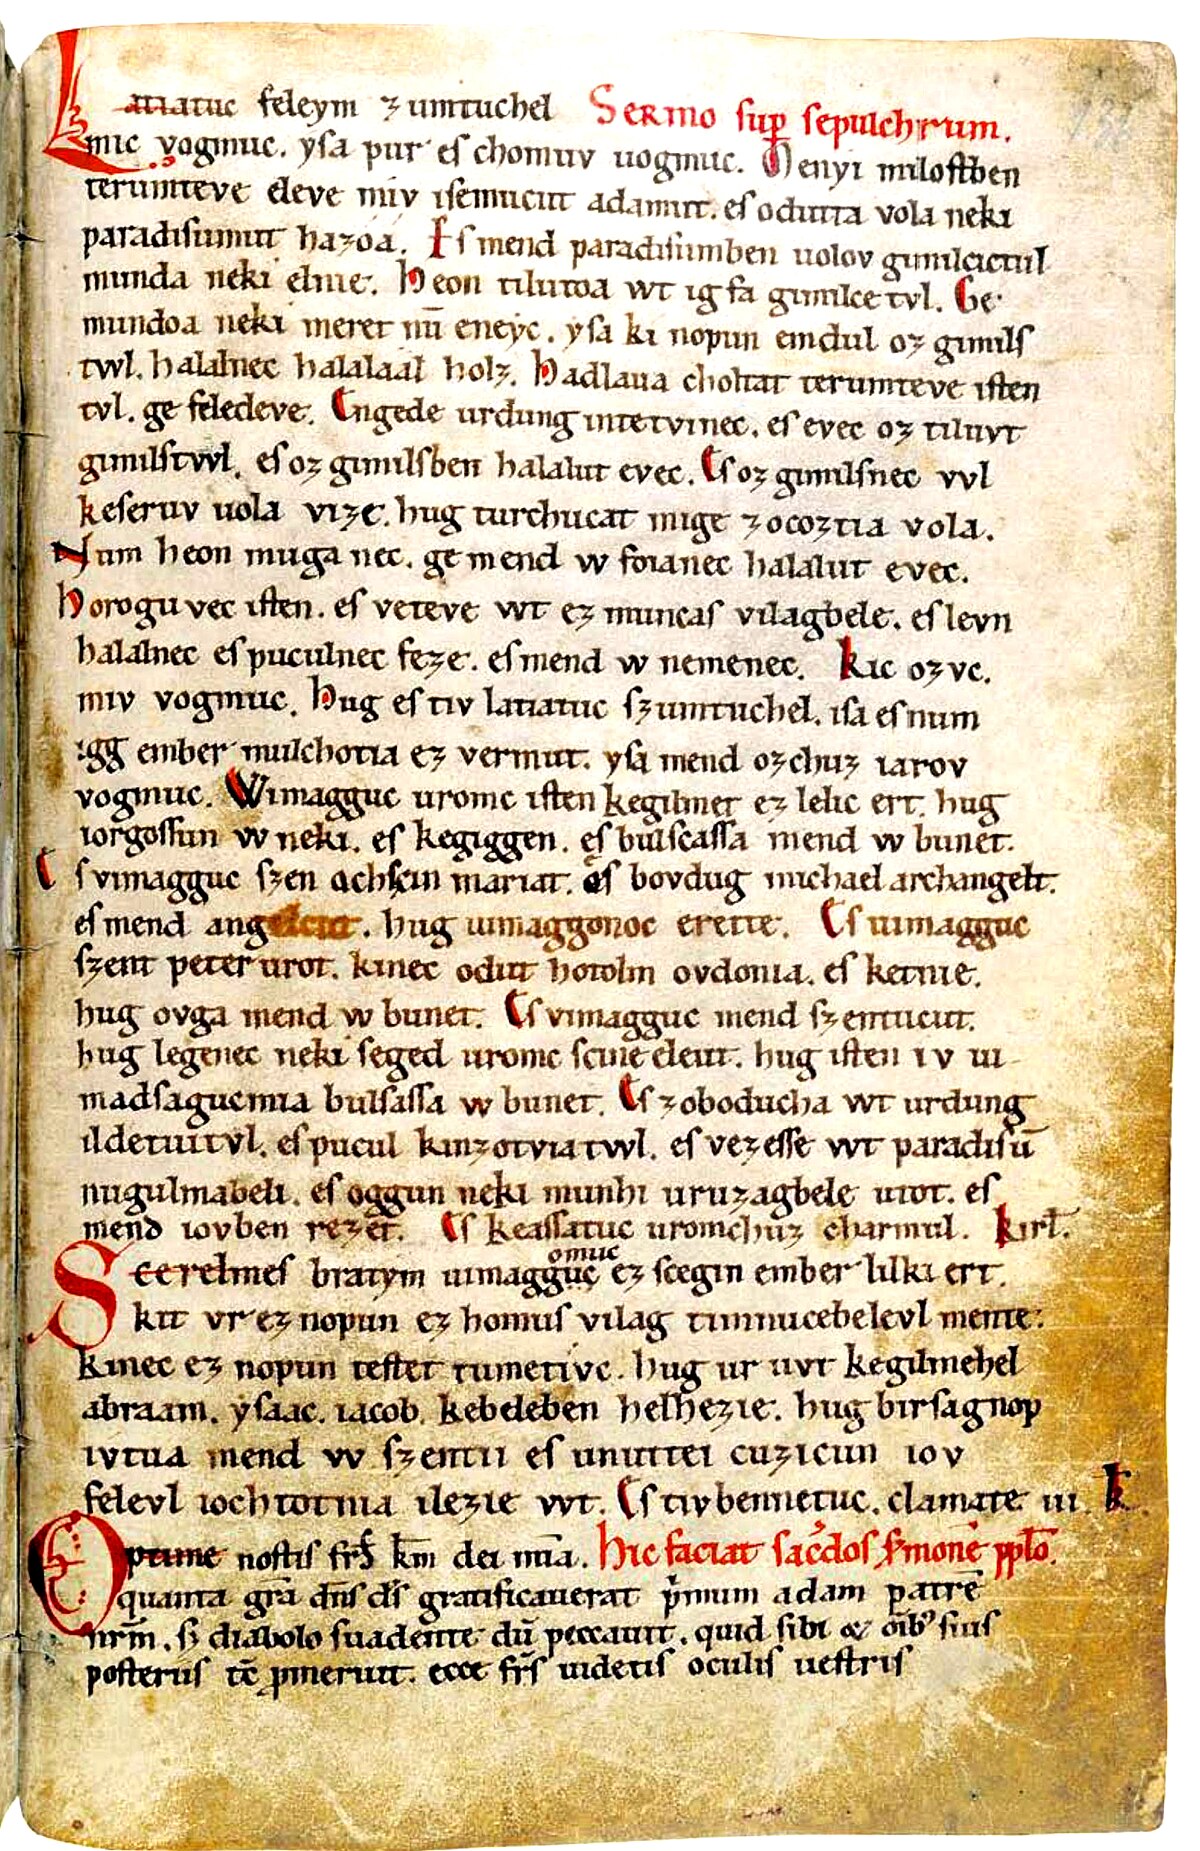 Latiatuc feleym zumtuchel Sermo sup sepulchrum.
mic vogmuc. ysa pur es chomuv uogmuc. Menyi milostben
terumteve eleve miv isemucut adamut. es odutta vola neki
paradisumut hazoa. Es mend paradisumben uolov gimilcictul
munda neki elnie. Heon tilutoa wt ig fa gimilce tvl. Ge
mundoa neki meret nū eneyc. ysa ki nopun emdul oz gimils
twl. halalnec halalaal holz. Hadlaua choltat terumteve isten
tvl. ge feledeve. Engede urdung intetvinec. es evec oz tiluvt
gimilstwl. es oz gimilsben halalut evec. Es oz gimilsnec vvl
keseruv uola vize. hug turchucat mige zocoztia vola.
Num heon muga nec. ge mend w foianec halalut evec.
Horogu vec isten. es veteve wt ez muncas vilagbele. es levn
halalnec es puculnec feze. es mend w nemenec. Kic ozvc.
miv vogmuc. Hug es tiv latiatuc szumtuchel. isa es num
igg ember mulchotia ez vermut. ysa mend ozchuz iarov
vogmuc. Wimagguc uromc isten kegilmet ez lelic ert. hug
iorgossun w neki. es kegiggen. es bulscassa mend w bunet.
Es vimagguc szen achscin mariat. es bovdug michael archangelt.
es mend angelcut. hug uimaggonoc erette. Es uimagguc
szent peter urot. kinec odut hotolm ovdonia. es ketnie.
hug ovga mend w bunet. Es vimagguc mend szentucut.
hug legenec neki seged uromc scine eleut. hug isten iv ui
madsaguc mia bulsassa w bunet. Es zoboducha wt urdung
ildetuitvl. es pucul kinzotviatwl. es vezesse wt paradisū
nugulmabeli. es oggun neki munhi uruzagbele utot. es
mend iovben rezet. Es keassatuc uromchuz charmul. Kirl.
Scerelmes bratym uimagguc omuc ez scegin ember lilki ert.
kit vr ez nopun ez homus vilag timnucebelevl mente.
kinec ez nopun testet tumetivc. hug ur uvt kegilmehel
abraam. ysaac. iacob. kebeleben helhezie. hug birsagnop
ivtua mend w szentii es unuttei cuzicun iov
felevl iochtotnia ilezie wt. Es tivbennetuc. clamate iii. K
Optime nostis frs km dei mia. Hic faciat sacdos smone pplo.
quanta gra dns ds gratificauerat pmum adam patrē
nrm. sz diabolo suadente dū peccauit. quid sibi & oib suis
posteris tc pmeruit. ecce frs uidetis oculis uestris